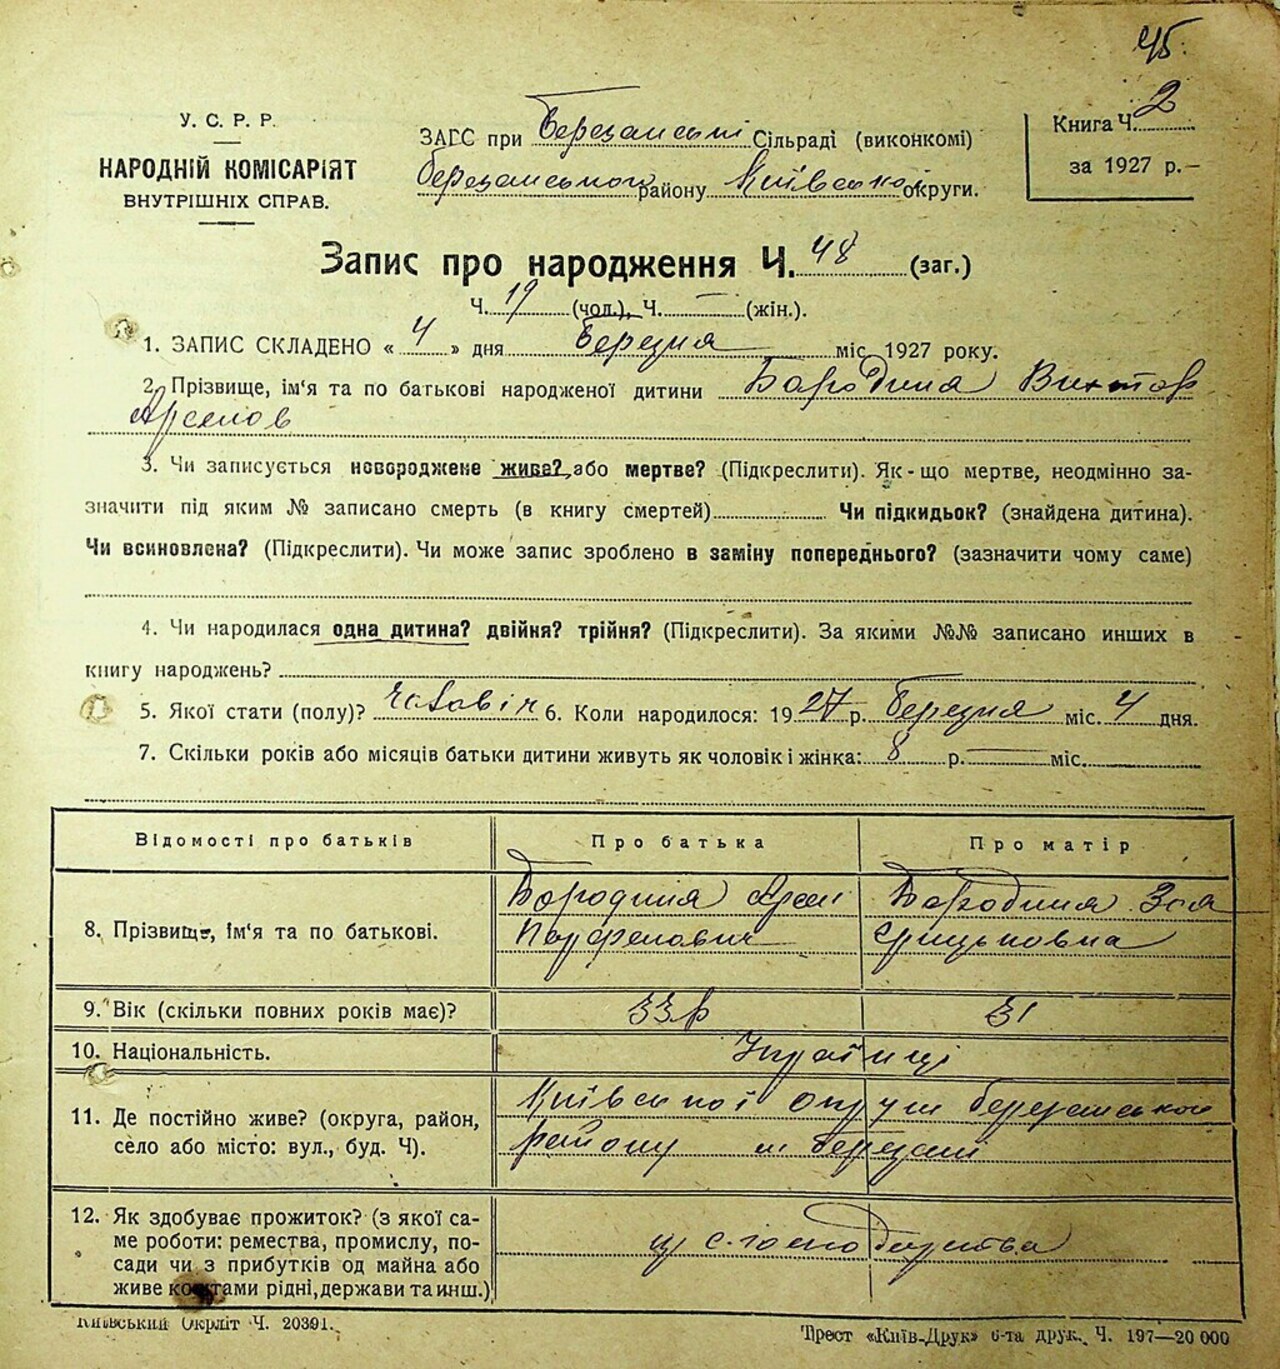 45.
У. С. Р. Р.
НАРОДНІЙ КОМІСАРІЯТ
ВНУТРІШНІХ СПРАВ.
ЗАГС при Березанські Сільраді (виконкомі)
березанського району Київської округи.
Книга Ч. 2
за 1927 р.—
Запис про народження Ч. 48 (заг.)
Ч. 19 (чол.), Ч. — (жін.).
1. ЗАПИС СКЛАДЕНО « 4 » дня березня міс. 1927 року.
2. Прізвище, ім‘я та по батькові народженої дитини Бородина Виктор
Арсенов
3. Чи записується новороджене живе? або мертве? (Підкреслити). Як-що мертве, неодмінно за-
значити під яким № записано смерть (в книгу смертей) Чи підкидьок? (знайдена дитина).
Чи всиновлена? (Підкреслити). Чи може запис зроблено в заміну попереднього? (зазначити чому саме)
4. Чи народилася одна дитина? двійня? трійня? (Підкреслити). За якими №№ записано инших в
книгу народжень?
5. Якої стати (полу)? чоловік 6. Коли народилося: 1927 р. березня міс. 4 дня.
7. Скільки років або місяців батьки дитини живуть як чоловік і жінка: 8 р. — міс.
Відомості про батьків Про батька Про матір
8. Прізвище, ім‘я та по батькові. Бородина Арсен Парфенович Бородина Зоя Грицьковна
9. Вік (скільки повних років має)? 33 р 31
10. Національність. Українці
11. Де постійно живе? (округа, район, Київської округи березанського
село або місто: вул., буд. Ч). району м березані
12. Як здобуває прожиток? (з якої са-
ме роботи: ремества, промислу, по- с. господарства
сади чи з прибутків од майна або
живе коштами рідні, держави та инш.)
Київський Окрліт Ч. 20391.
Трест «Київ-Друк» 6-та друк. Ч. 197—20 000